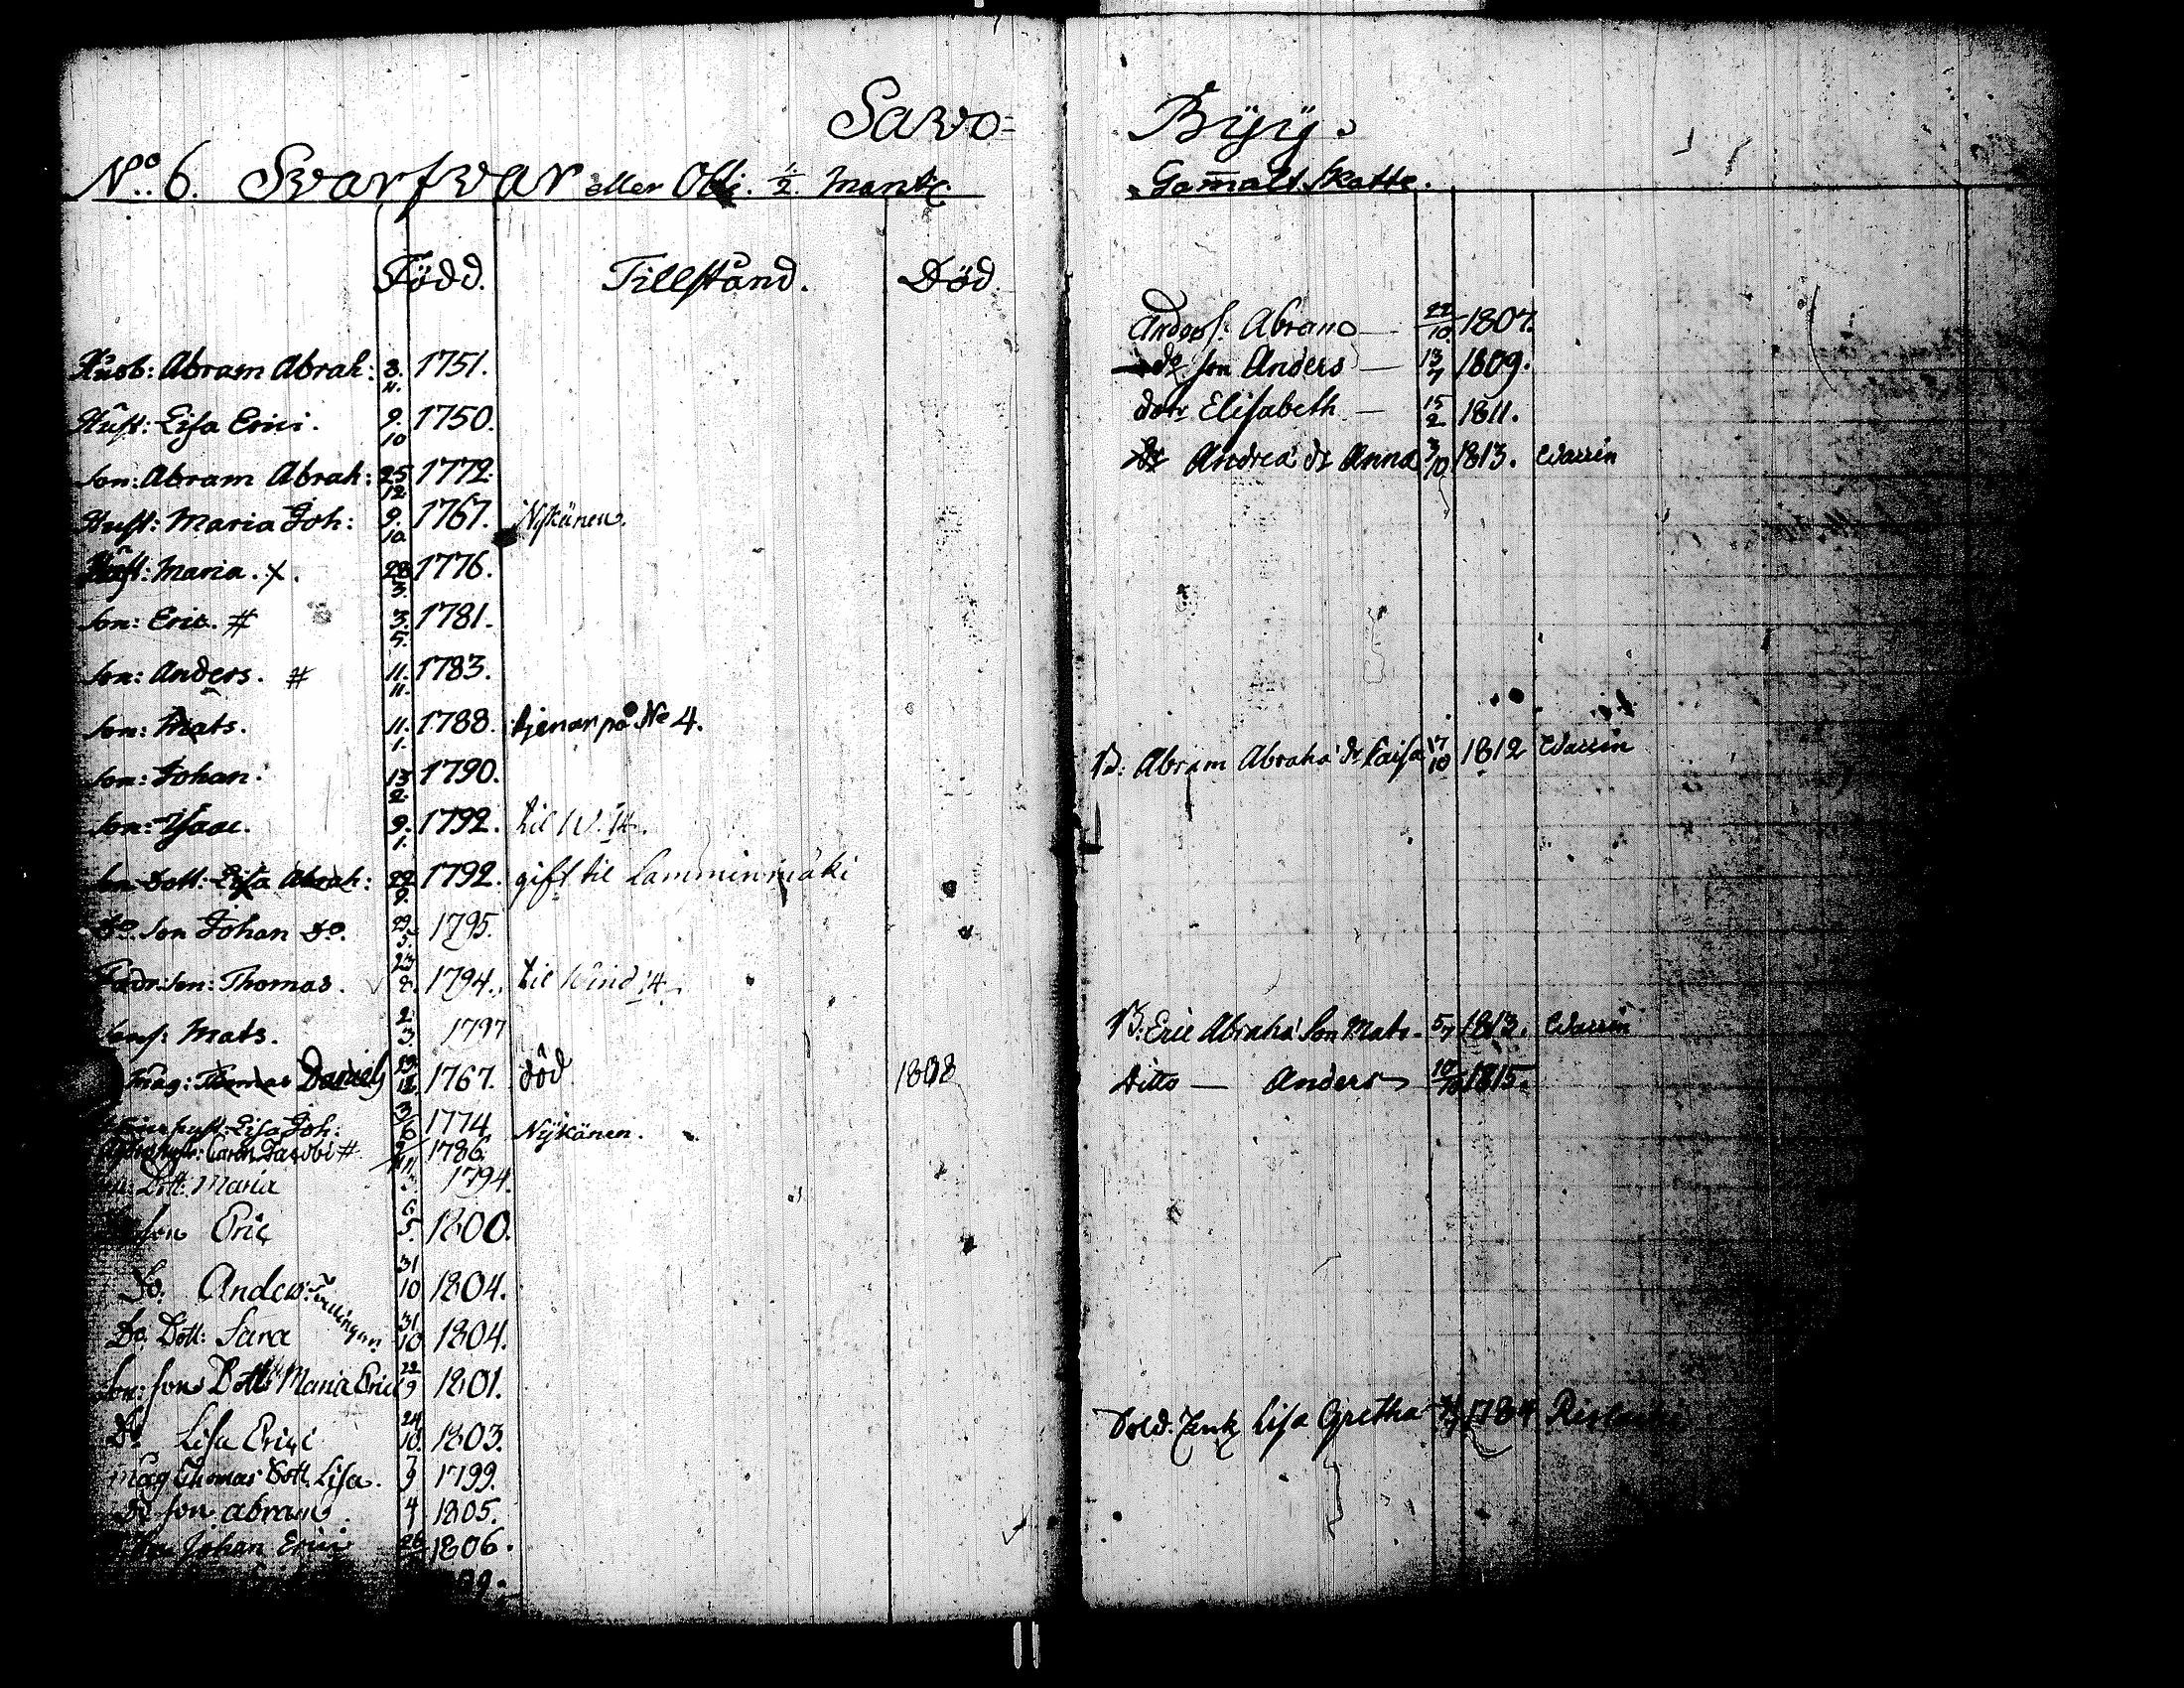 Savo-
No. 6. Svarfvar eller Olli. 1/2 Mantl.
Född. Tillstånd. Död.
Husb: Abram Abrah: 3. 11. 1751.
Hust: Lisa Erici. 9. 10 1750.
Son: Abram Abrah: 25 12 1772.
Hust: Maria Joh: 9. 10. 1767. Nykänen.
Hust: Maria. X. 28 3. 1776.
Son: Eric. # 3. 5. 1781.
Son: Anders. # 11. 11. 1783.
Son: Mats. 11. 1. 1788. tjenar på No 4.
Son: Johan. 13 2. 1790.
Son: Isaac. 9. 1. 1792. til W. 14.
Son Dott: Lisa Abrah: 22 9. 1792. gift til Lamminmäki
Do. Son Johan Do. 29 5. 1795.
Fadr. Son: Thomas. 23 8. 1794. til Wind 14.
Mats. 2 3. 1797
Måg: Thomas Daniels 1767. död 1808
Hust: Lisa Joh: 3/6 1774 Nykänen.
Caren Jacobi # 1786.
Dott: Maria 1794.
Son Eric 6 5. 1800.
Do. Anders tvillingar. 31 10 1804.
Do. Dott: Sara 31. 10 1804.
Son: Sons Dott: Maria Erici 22 9 1801.
Do Lisa Erici 24 10. 1803.
Måg Thomas Dott. Lisa. 7 9 1799.
Do Son Abram. 4 1 1805.
Johan Erici 26 1806.
Byy.
Gamalt Skatte.
Anders s: Abram — 22 10. 1807.
do son Anders — 13 7 1809.
dotr Elisabeth — 15 2 1811.
Andrea dr Anna 3/10 1813. Warin
B: Abram Abraha dr Caisa 17 10 1812 Warin
B: Eric Abraha Son Mats. 5/7 1813. Warin
Ditto — Anders 10/10 1815.
Sold. Enk Lisa Gretha 1784